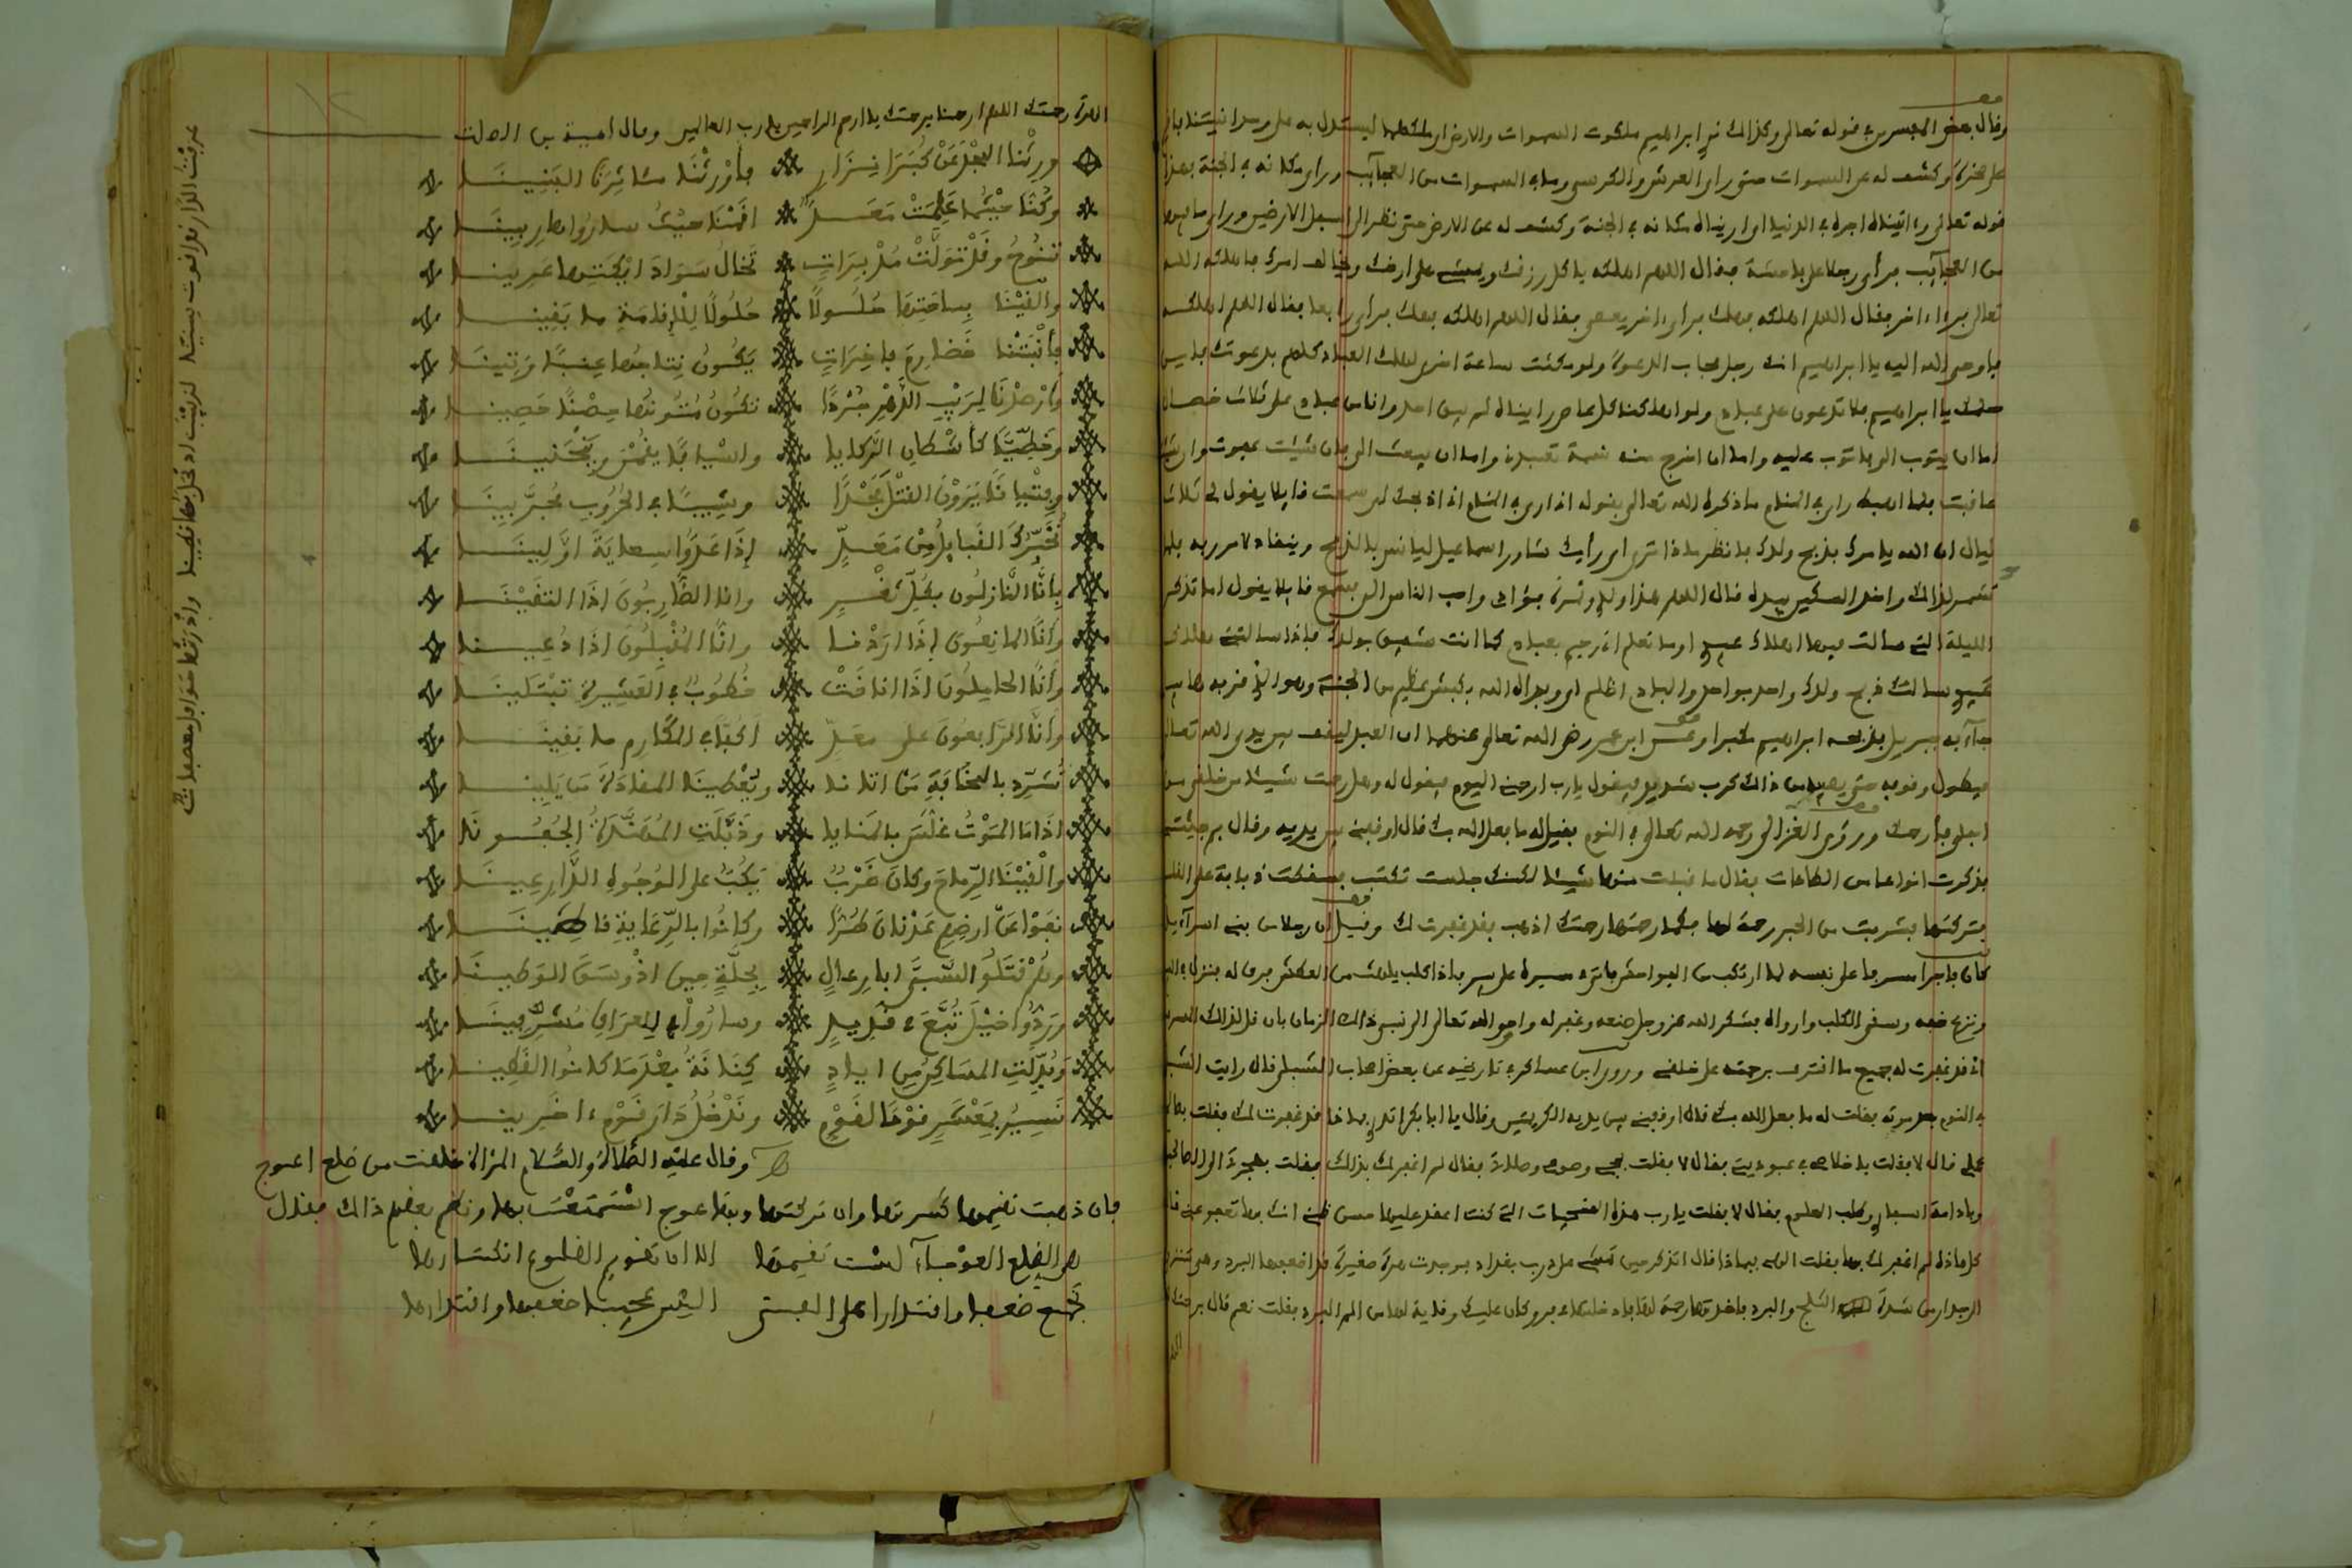 وقال بعض المفسرين في قوله تعالى وكذالك نري ابراهيم ملكوت السموات والارض اي ملكهما ليستدل به على وحدانيتنا
على صخرة وكشف له عن السموات حتى رأى العرش والكرسي وما في السموات من العجآيب ورأى مكانه في الجنة فهذا
قوله تعالى وءاتيناه اجره في الدنيا اي اريناه مكانه في الجنة وكشف له عن الارض حتى نظر الى اسفل الارضين ورأى ما فيها
من العجآيب فرأى رجلا على فاحشة فقال اللهم اهلكه ياكل رزقك ويمشي على ارضك ويخالف امرك فاهلكه الله
تعالى فرءا ءاخر فقال اللهم اهلكه فهلك فرأى ءاخر يعصي فقال اللهم اهلكه فهلك فرأى رابعا فقال اللهم اهلكه
فاوحى الله اليه يا ابراهيم انك رجل مجاب الدعوة ولو مكثت ساعة اخرى لهلك العباد كلهم بدعوتك فليس
يا ابراهيم فلا تدعون على عبادي ولو اهلكنا كل عاص رايناه لم يبق احد وانا من عبادي على ثلاث خصال
اما ان يتوب الي فاتوب عليه واما ان اخرج منه نسمة تعبدني واما ان يبعث الي فان شئت عفوت وان شئت
عاقبت فلما اصبح رأى في المنام ما ذكره الله تعالى بقوله اني ارى في المنام اني اذبحك اي سمعت قايلا يقول لي ثلاث
ليال ان الله يامرك بذبح ولدك فانظر ماذا ترى اي رأيك شاور اسماعيل ليانس بالذبح وينقاد لامر ربه فلما
تشمر لذالك واخذ السكين بيده قال اللهم هذا ولدي وثمرة فؤادي واحب الناس الي فسمع قايلا يقول اما تذكر
الليلة التي سالت فيها اهلاك عبدي اوما تعلم اني رحيم بعبادي كما انت شفيق بولدك فاذا سالتني اهلاك
عبدي سالتك ذبح ولدك واحد بواحد والبادي اظلم اي وفداه الله بكبش عظيم من الجنة وهو الذي قربه هابيل
جآء به جبريل فذبحه ابراهيم مكبرا وعن ابن عمر رضي الله تعالى عنهما ان العبد ليقف بين يدي الله تعالى
فيطول وقوفه حتى يصيبه من ذالك كرب شديد فيقول يارب ارحمني اليوم فيقول له وهل رحمت شيئا من خلقي من
اجلي فأرحمك وروي الغزالي رحمه الله تعالى في النوم فقيل له ما فعل الله بك قال اوقفني بين يديه وقال بم جئتني
فذكرت انواعا من الطاعات فقال ما قبلت منها شيئا لكنك جلست تكتب فسقطت ذبابة على القلم
فتركتها تشربت من الحبر رحمة لها فكما رحمتها رحمتك اذهب فقد غفرت لك وقيل ان رجلا من بني اسرآءيل
كان فاجرا مسرفا على نفسه لما ارتكب من الفواحش فاتى في مسيره على بير فاذا كلب يلهث من العطش فرق له فنزل في البير
ونزع خفه وسقى الكلب وارواه فشكر الله عز وجل صنعه وغفر له واوحى الله تعالى الى نبي ذالك الزمان بان قل لذالك المسرف
اني قد غفرت له جميع ما اقترف برحمته على خلقي وروى ابن عساكر في تاريخه عن بعض اصحاب الشبلي قال رايت الشبلي
في النوم بعد موته فقلت له ما فعل الله بك قال اوقفني بين يديه الكريمتين وقال يا ابا بكر اتدري بماذا غفرت لك فقلت بصالح
عملي قال لا فقلت باخلاصي في عبوديتي فقال لا فقلت بحجي وصومي وصلاتي فقال لم اغفر لك بذالك فقلت بهجرتي الى الصالحين
وادامة اسفاري وطلب العلوم فقال لا فقلت يارب هذه المنجيات التي كنت اعقد عليها حسن ظني انك بها تعفو عني قال
كل هاذه لم اغفر لك بها فقلت الهي فبماذا قال اتذكر حين تمشي على درب بغداد فوجدت هرة صغيرة قد اضعفها البرد وهي تنزوي
الى جدار من شدة الثلج والبرد فاخذتها رحمة لها فادخلتها في فرو كان عليك وقاية لها من الم البرد فقلت نعم قال برحمتك
الهرة رحمتك اللهم ارحمنا برحمتك يا ارحم الراحمين يا رب العالمين وقال امية بن ابي الصلت
ورثنا المجد عن كبرا نزار فأورثنا مئاثرنا البنينا
وكنا حيثما علمت معد اقمنا حيث ساروا هاربينا
تنوح وقد تولت مدبرات تخال سواد ايكتها عرينا
والفينا بساحتها حلولا حلولا للاقامة ما بقينا
فأنبتنا خضارم فاخرات يكون نتاجها عنبا وتينا
وارصدنا لريب الدهر جردا تكون متونها حصنا حصينا
وخطيا كأشطان الركايا واسيافا يقمن وينحنينا
وفتيانا يرون القتل مجدا وشيبا في الحروب مجربينا
تخبرك القبايل من معد إذا عدوا سعاية اولينا
بأنا النازلون بكل ثغر وانا الضاربون اذا التقينا
وأنا المانعون إذا اردنا وانا المقبلون اذا دعينا
وأنا الحاملون اذا اناخت خطوب في العشيرة تبتلينا
وأنا الرافعون على معد اكفا في المكارم ما بقينا
نشرد بالمخافة من اتانا ويعطينا المقادة من يلينا
اذا ما الموت غلس بالمنايا وذبلت المهندة الجفونا
والفينا الرماح وكان ضرب يكب على الوجوه الدارعينا
نفوا عن ارضهم عدنان طرا وكانوا بالرعاية قاطنينا
وهم قتلوا السبي ابا رغال بحلة حين اذ وسق الوطينا
وردوا خيل تبع في قديد وساروا للعراق مشرقينا
وبدلت المساكن من اياد كنانة بعد ما كانوا القطينا
نسير بمعشر قوما لقوم وندخل دار قوم ءاخرينا
وقال عليه الصلاة والسلام المراة خلقت من ضلع اعوج
فان ذهبت تقيمها كسرتها وان تركتها وبها عوج استمتعت بها ونظم بعضهم ذالك فقال
هي الضلع العوجآء لست تقيمها الا ان تقويم الضلوع انكسارها
تجمع ضعفا واقتدارا على الفتى اليس عجيبا ضعفها واقتدارها